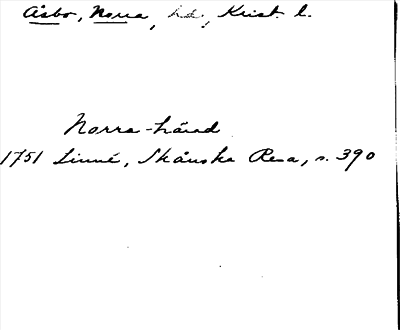 Åsbo, Norra, hd, Krist. l.
Norra-härad
1751 Linné, Skånska Resa, s. 390